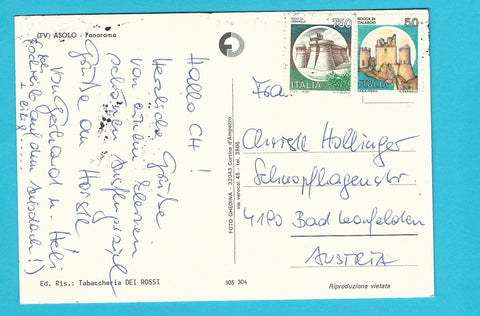 (TV) ASOLO - Panorama
Hallo CH!
Herzliche Grüße
von einem kleinen
schönen Ausflugsziel
Grüße an Horst
von Gerhard u. Heli
(derweil auf dem
Ed. Ris.: Tabaccheria DEI ROSSI
FOTO GHEDINA - 32043 Cortina d'Ampezzo
305 304
750
ITALIA
ROCCA DI
CALASCIO
50
ITALIA
Frau
Christl Hollinger
Schnopfhagenstr.
4190 Bad Leonfelden
AUSTRIA
Riproduzione vietata